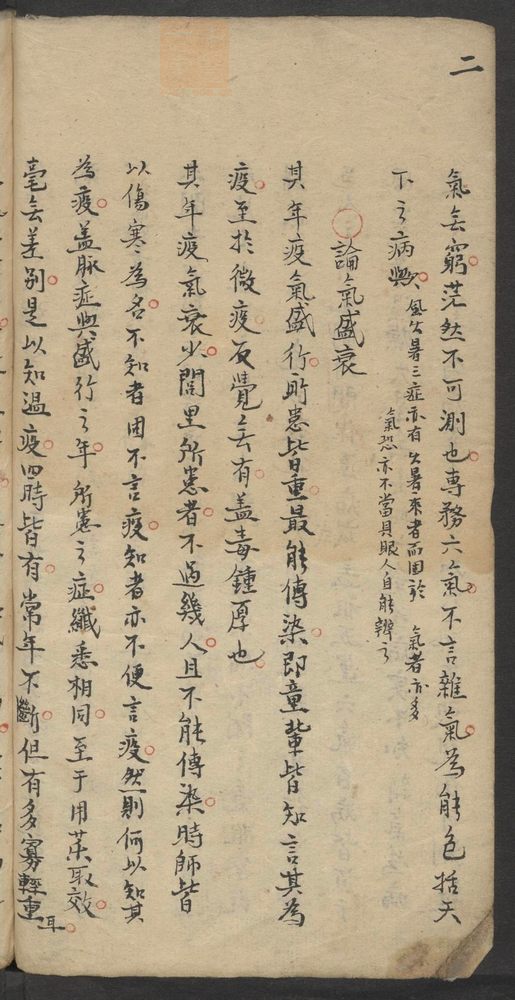 二
氣無窮茫然不可測也專務六氣不言雜氣為能包括天
下之病與
風火暑三症亦有火暑來者而困於 氣者亦多
氣恐亦不當具眼人自能辨之
論氣盛衰
其年疫氣盛行所患皆重最能傳染即童輩皆知言其為
疫至於微疫反覺無有盖毒鍾厚也
其年疫氣衰少閭里所患者不過幾人且不能傳染時師皆
以傷寒為名不知者固不言疫知者亦不便言疫然則何以知其
為疫盖脉症與盛行之年所患之症纖悉相同至于用葯取效
毫無差別是以知溫疫四時皆有常年不斷但有多寡輕重耳